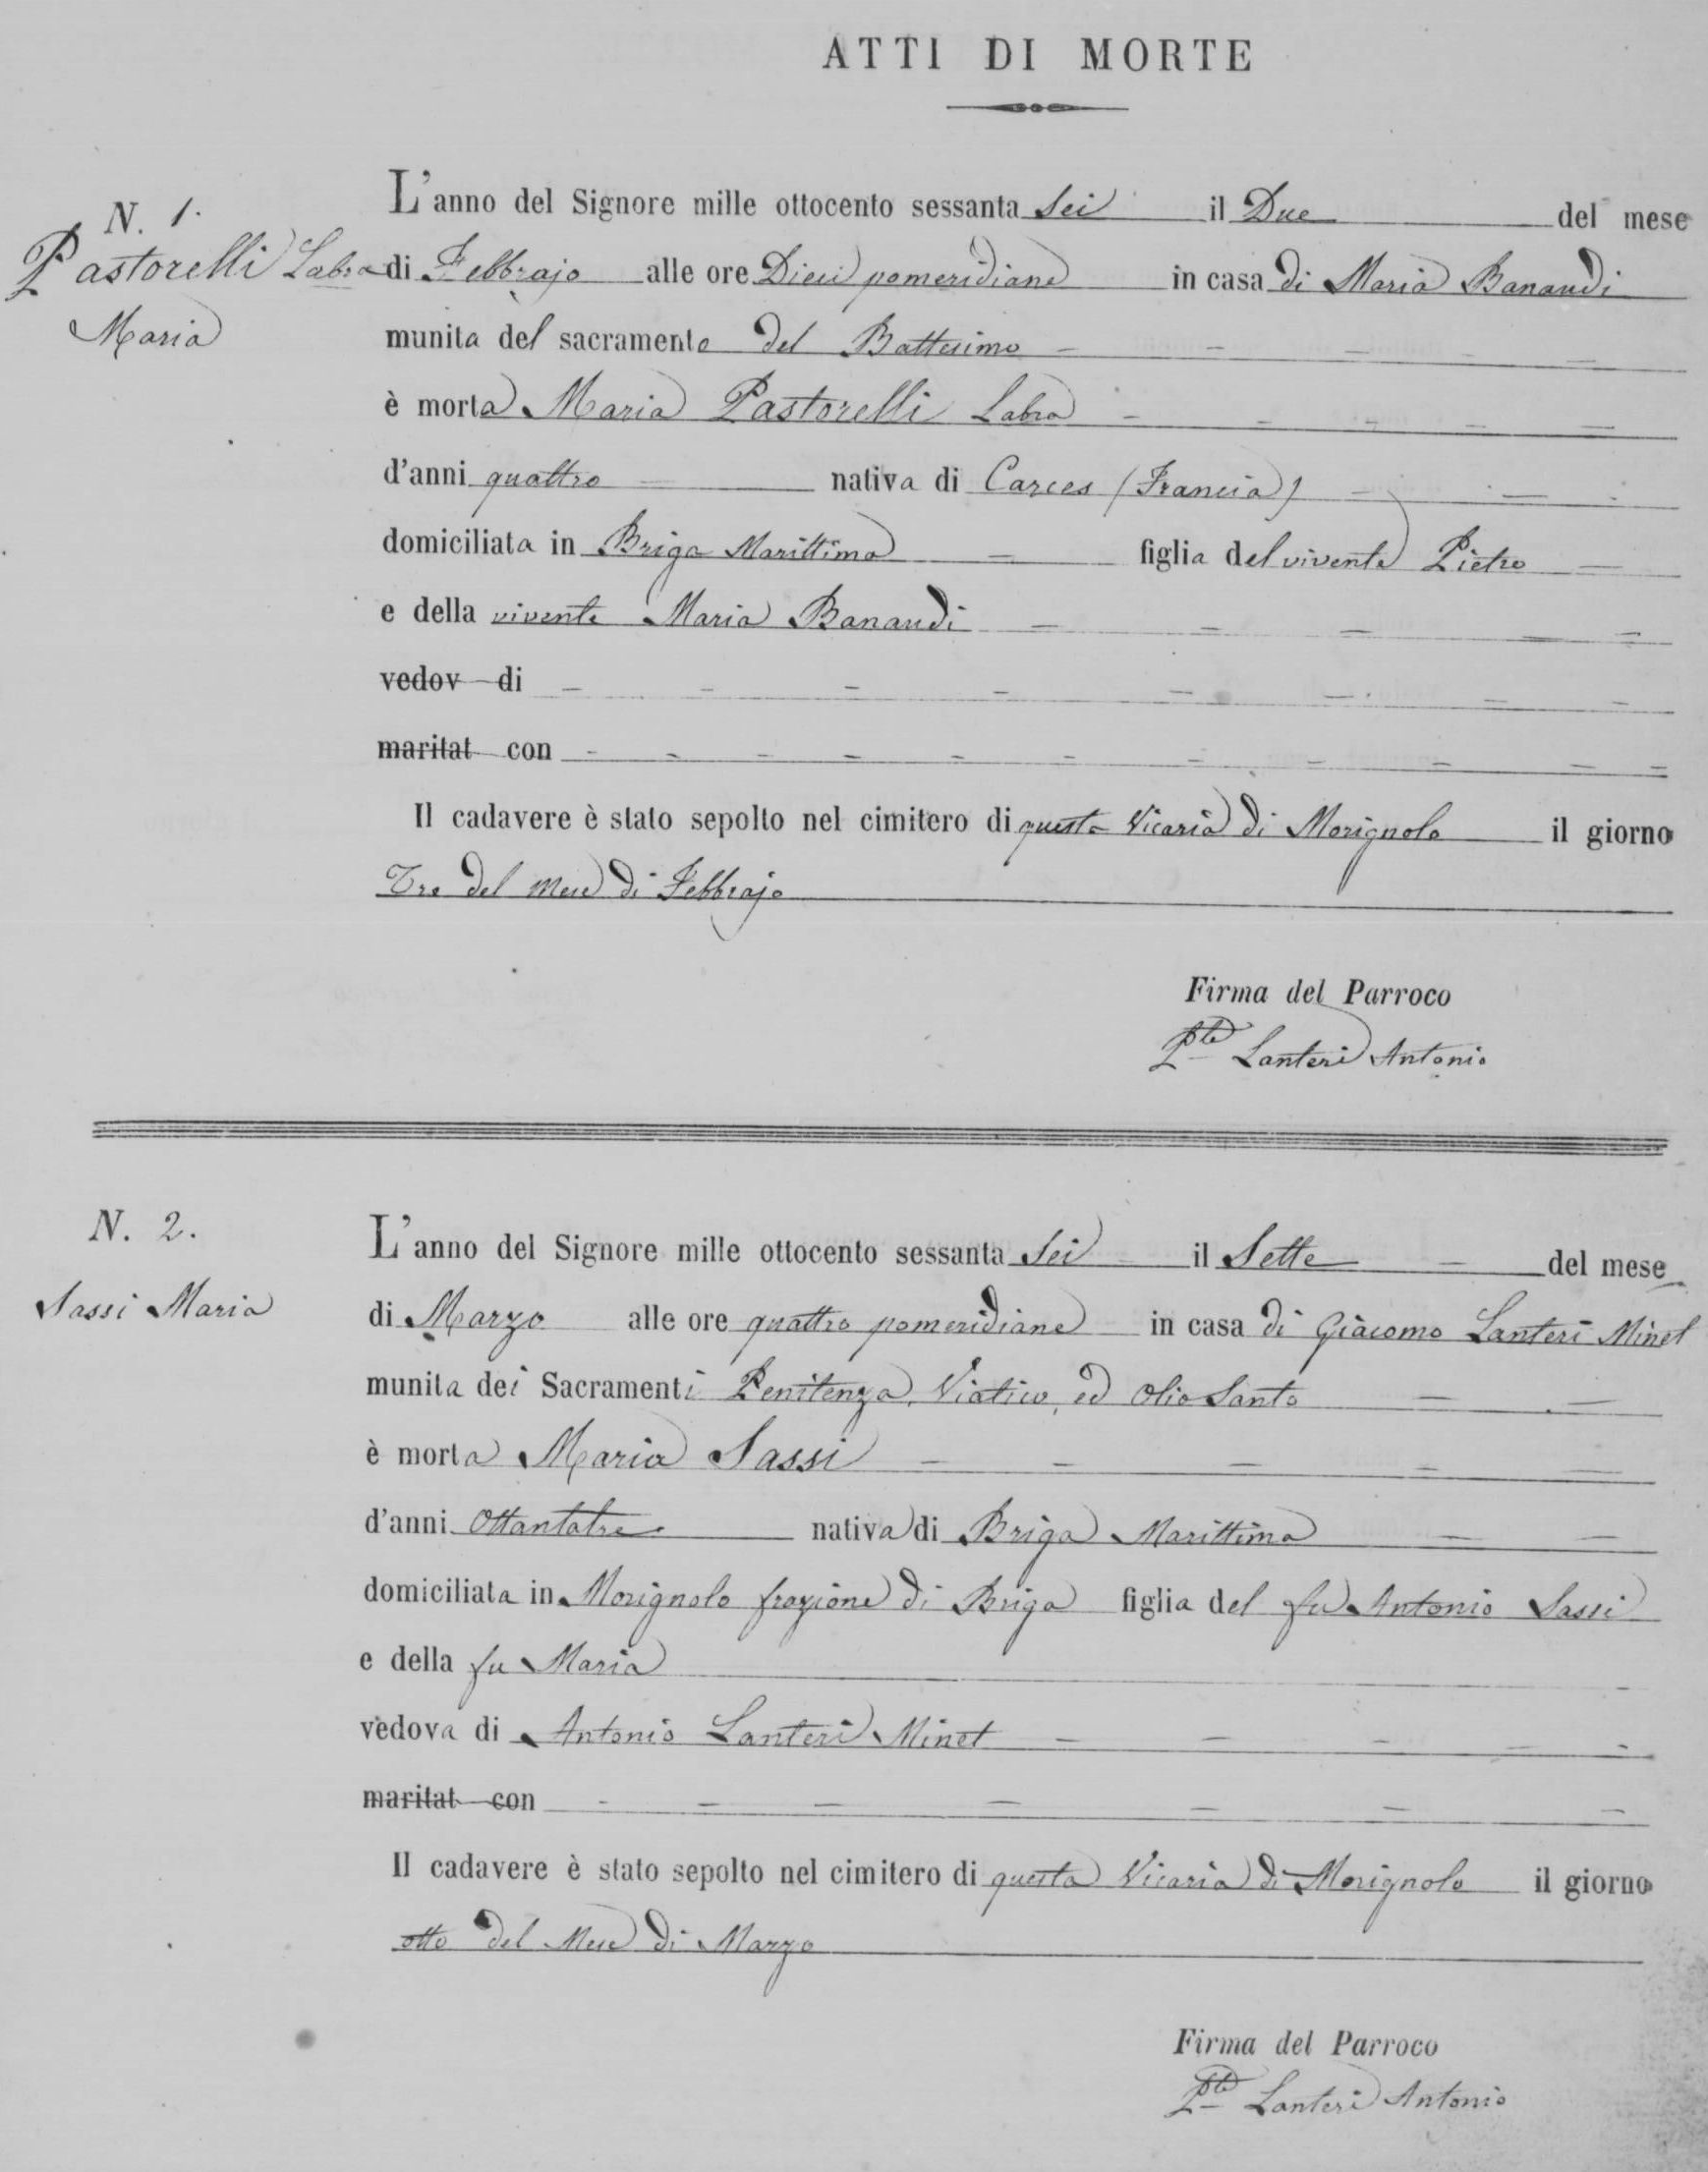 ATTI DI MORTE
N. 1.
Pastorelli Labra
Maria
L'anno del Signore mille ottocento sessanta Sei il Due del mese
di Febbrajo alle ore Dieci pomeridiane in casa di Maria Banaudi
munita del sacramento del Battesimo
è morta Maria Pastorelli Labra
d'anni quattro nativa di Carces (Francia)
domiciliata in Briga Marittima figlia del vivente Pietro
e della vivente Maria Banaudi
vedov di
maritat con
Il cadavere è stato sepolto nel cimitero di questa Vicaria di Morignolo il giorno
Tre del Mese di Febbrajo
Firma del Parroco
Pte Lanteri Antonio
N. 2.
Sassi Maria
L'anno del Signore mille ottocento sessanta Sei il Sette del mese
di Marzo alle ore quattro pomeridiane in casa di Giacomo Lanteri Minet
munita dei Sacramenti Penitenza, Viatico, ed Olio Santo
è morta Maria Sassi
d'anni Ottantatre nativa di Briga Marittima
domiciliata in Morignolo frazione di Briga figlia del fu Antonio Sassi
e della fu Maria
vedova di Antonio Lanteri Minet
maritat con
Il cadavere è stato sepolto nel cimitero di questa Vicaria di Morignolo il giorno
otto del Mese di Marzo
Firma del Parroco
Pte Lanteri Antonio